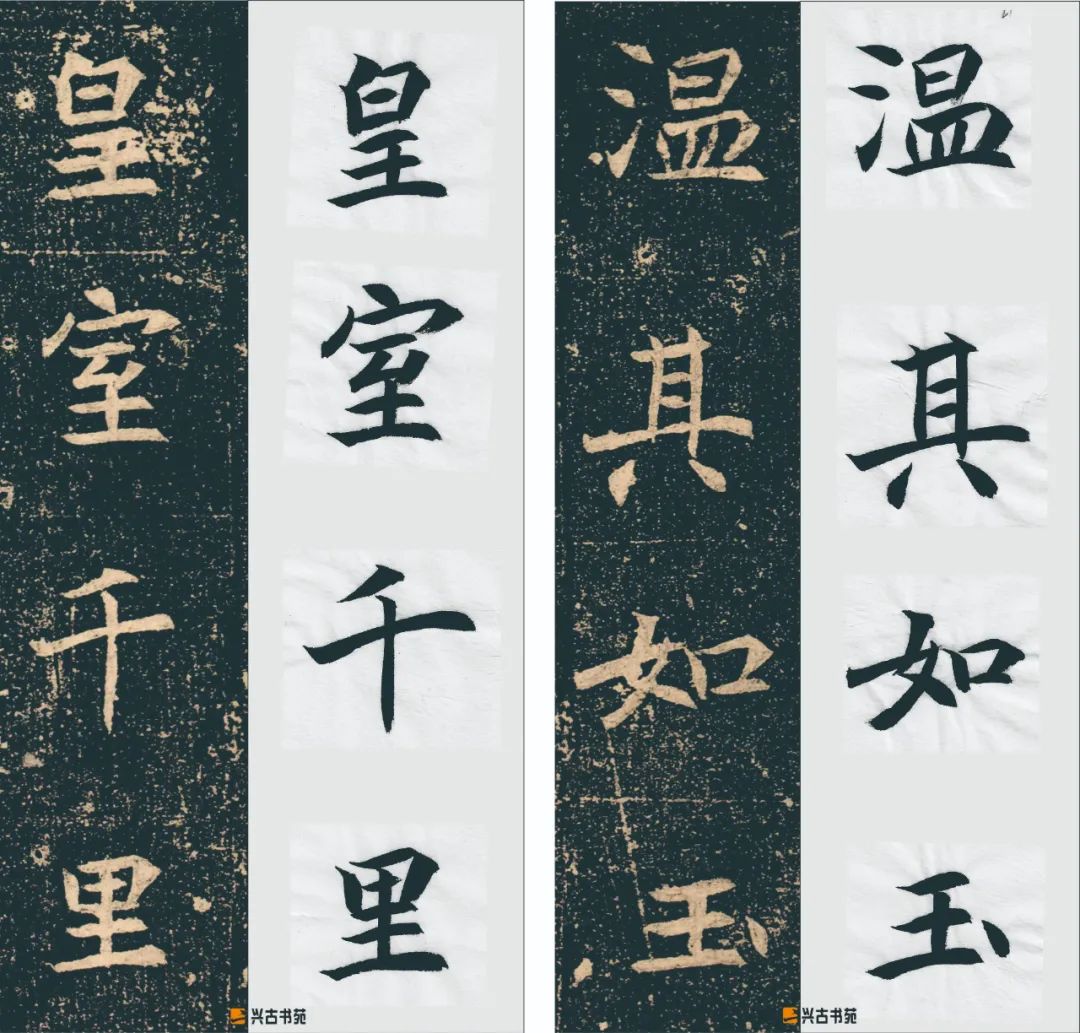 皇室千里
皇室千里
兴古书苑
温其如玉
温其如玉
兴古书苑